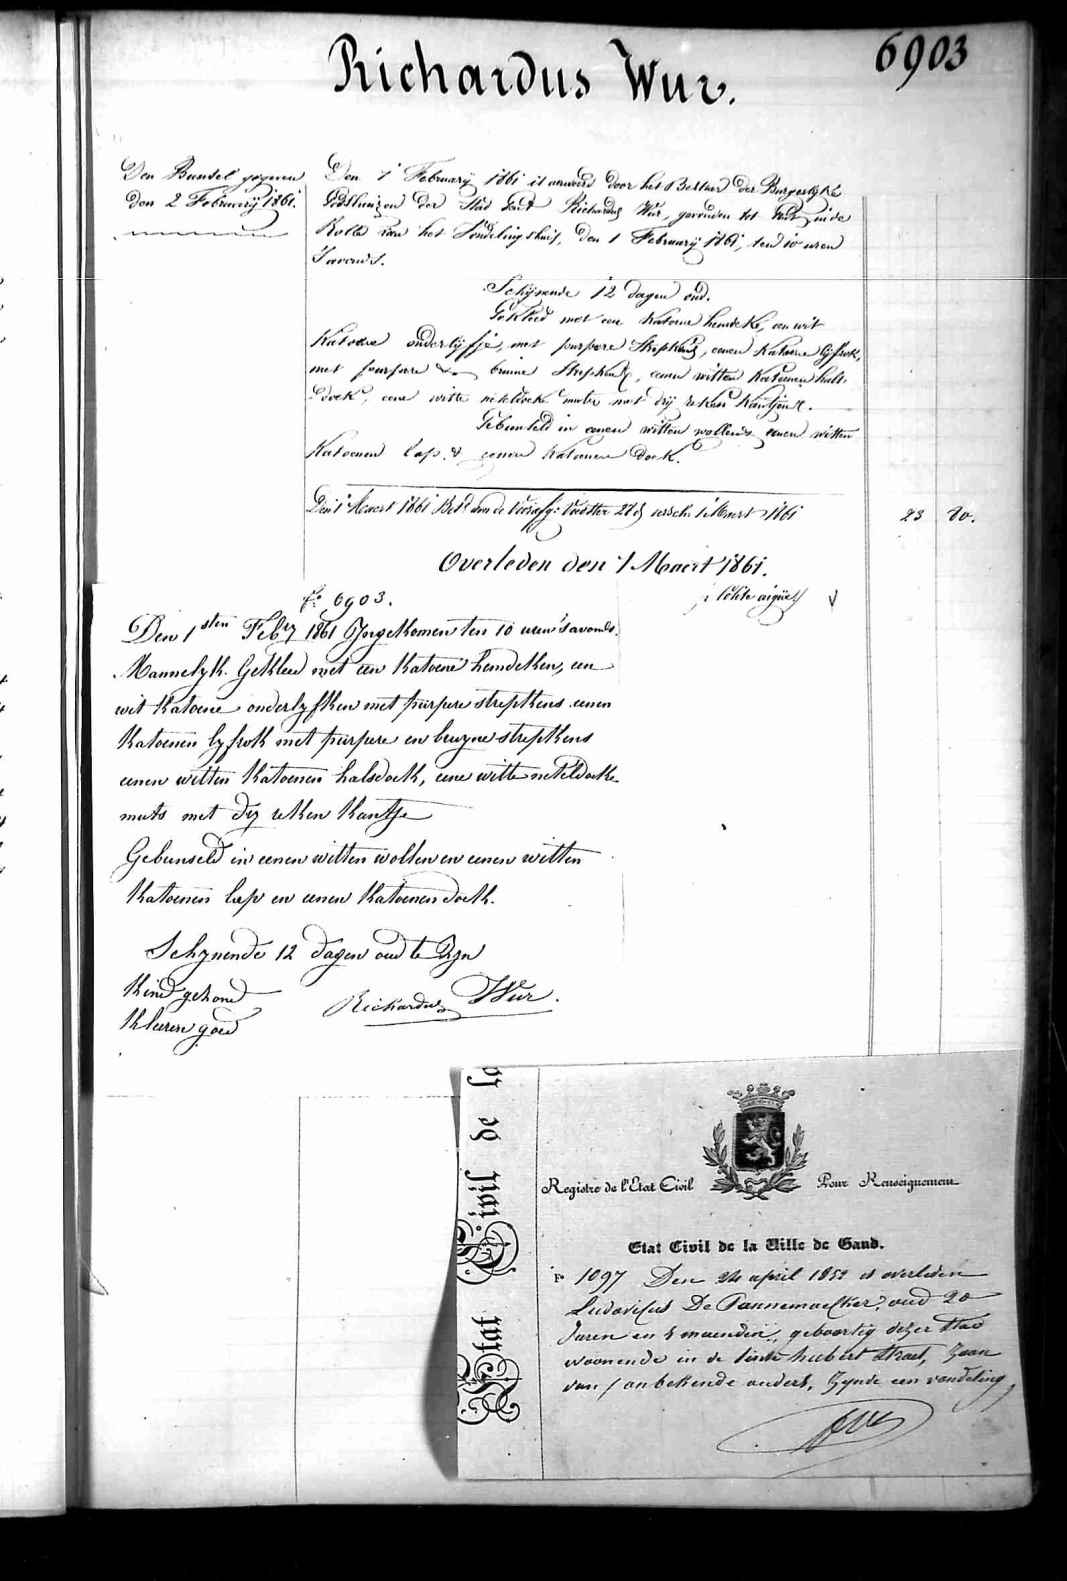 6903
Richardus Wur.
Den Bunsel gegeven
den 2 Februarij 1861.
Den 1 February 1861 is aenveerd door het Bestuer der Burgerlyke
Godshuizen der Stad Gent Richardus Wur, gevonden tot Gent in de
Rolle van het Vondelingshuis, den 1 February 1861, ten 10 uren
s'avonds.
Schijnende 12 dagen oud.
Gekleed met een katoene hemdeke, een wit
Katoene onderlijfje, met purpere strepkens, eenen katoene lijfrok,
met purpere en bruine strepkens, eenen witten katoenen hals-
doek, eene witte neteldoeke muts met drij reken kantjen.
Gebunseld in eenen witten wollen, eenen witten
Katoenen lap, & eenen katoenen doek.
Den 1 Maert 1861 Bet. aen de 1 Maert 1861
23 20.
Overleden den 1 Maert 1861.
aigüe
fo 6903.
Den 1sten Feby 1861 Ingekomen ten 10 uren s'avonds.
Mannelyk. Gekleed met een katoene hemdeken, een
wit katoene onderlyfken met purpure strepkens eenen
Katoenen lyfrok met purpure en bruyne strepkens
eenen witten katoenen halsdoek, eene witte neteldoeke
muts met dry reken kantje
Gebunseld in eenen witten wollen en eenen witten
Katoenen lap en eenen katoenen doek.
Schynende 12 dagen oud te zyn
Kind gezond
Kleeren goed
Richardus Wur.
Etat Civil de
Registre de l'Etat Civil Pour Renseignement
Etat Civil de la Ville de Gand.
Fo 1097 Den 24 april 1852 is overleden
Ludovicus De Pannemaecker, oud 20
Jaren en 5 maenden, geboortig dezer Stad
woonende in de Sinte hubert straet, Zoon
van onbekende ouders, Zynde een vondeling,